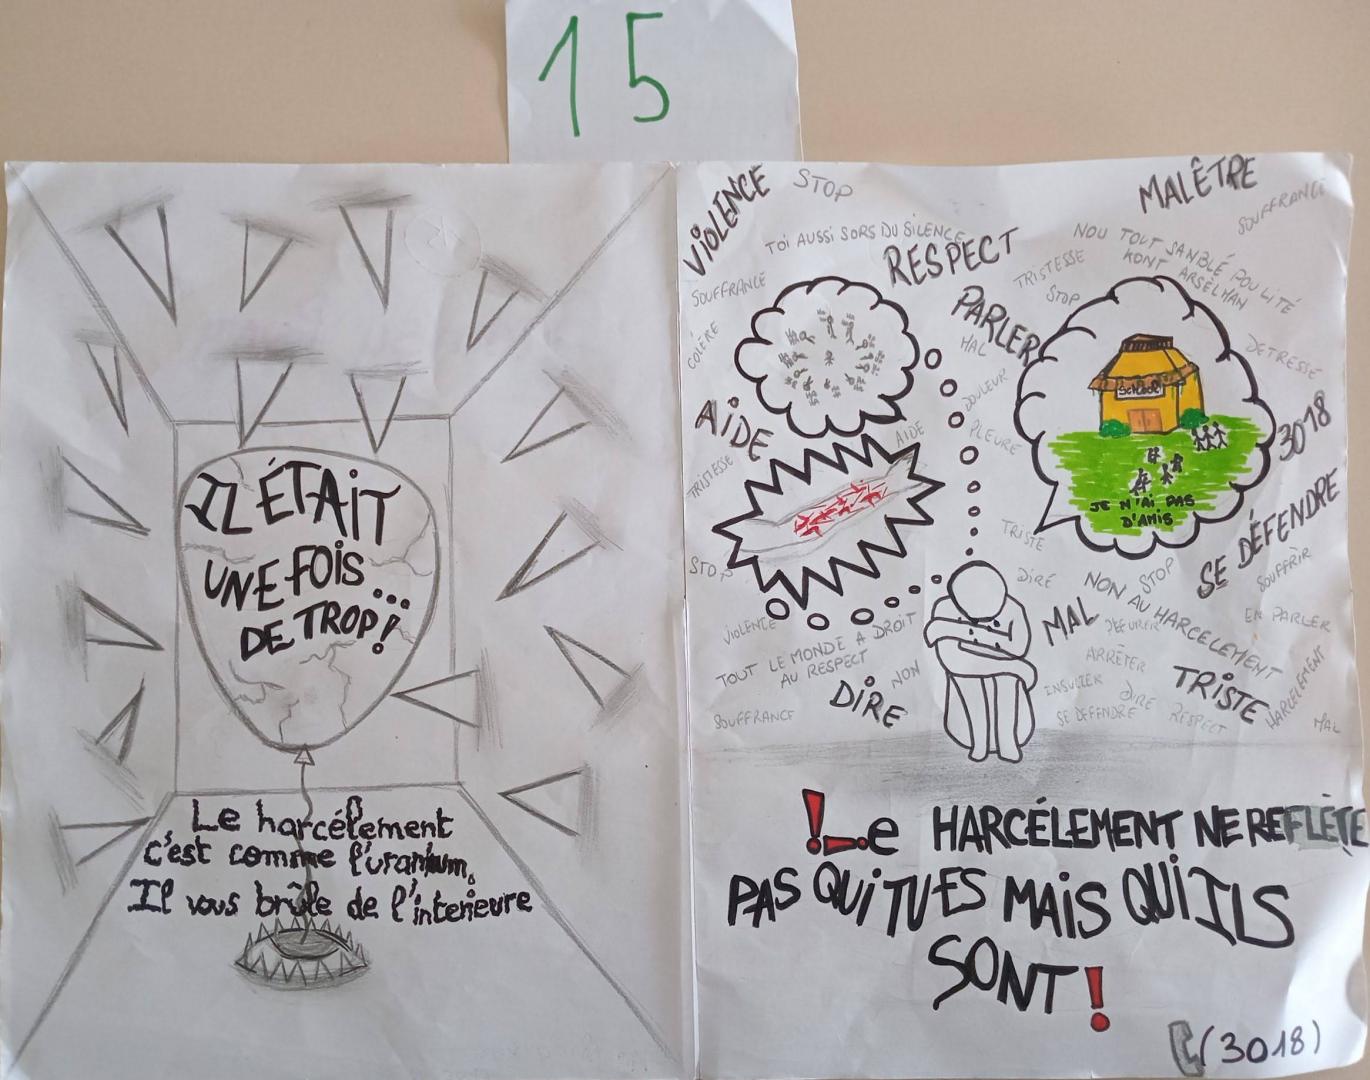 15
IL ÉTAIT
UNE FOIS...
DE TROP!
Le harcélement
c'est comme l'uranium,
Il vous brûle de l'interieure
VIOLENCE
STOP
MALÊTRE
SOUFFRANCE
TOI AUSSI SORS DU SILENCE
RESPECT
NOU TOUT SANBLÉ POU LITÉ
KONT ARSÈLMAN
SOUFFRANCE
TRISTESSE
STOP
PARLER
COLÈRE
MAL
DETRESSE
AIDE
DOULEUR
SCHOOL
3018
AIDE
PLEURE
TRISTESSE
JE N'AI PAS
D'AMIS
SE DÉFENDRE
TRISTE
STOP
STOP
DIRE
SOUFFRIR
NON AU HARCELEMENT
VIOLENCE
MAL
EN PARLER
TOUT LE MONDE A DROIT
AU RESPECT
NON
ARRÊTER
DIRE
TRISTE
HARCELEMENT
INSULTER
DIRE
SOUFFRANCE
SE DEFENDRE
RESPECT
MAL
!Le HARCÉLEMENT NE REFLÈTE
PAS QUI TU ES MAIS QUI ILS
SONT!
(3018)